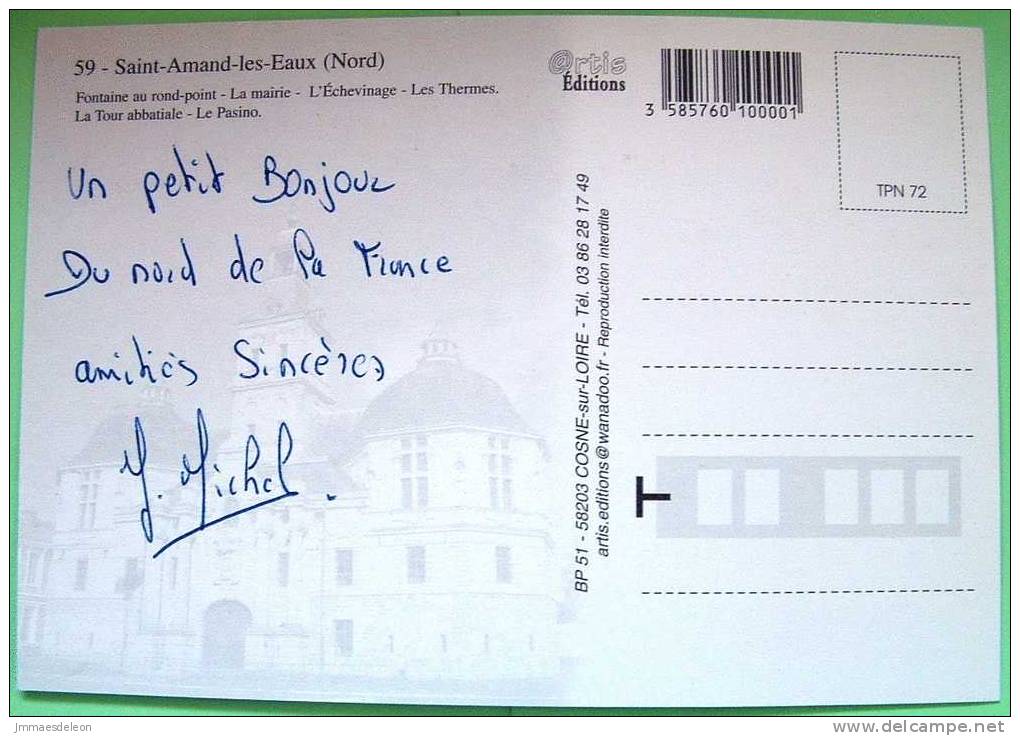 59 - Saint-Amand-les-Eaux (Nord)
Fontaine au rond-point - La mairie - L'Échevinage - Les Thermes.
La Tour abbatiale - Le Pasino.
Un petit Bonjour
Du nord de la France
amitiés Sincères
J. Michel.
@rtis
Éditions
3 585760 100001
TPN 72
BP 51 - 58203 COSNE-sur-LOIRE - Tél. 03 86 28 17 49
artis.editions@wanadoo.fr - Reproduction interdite
jmmaesdeleon
www.delcampe.net